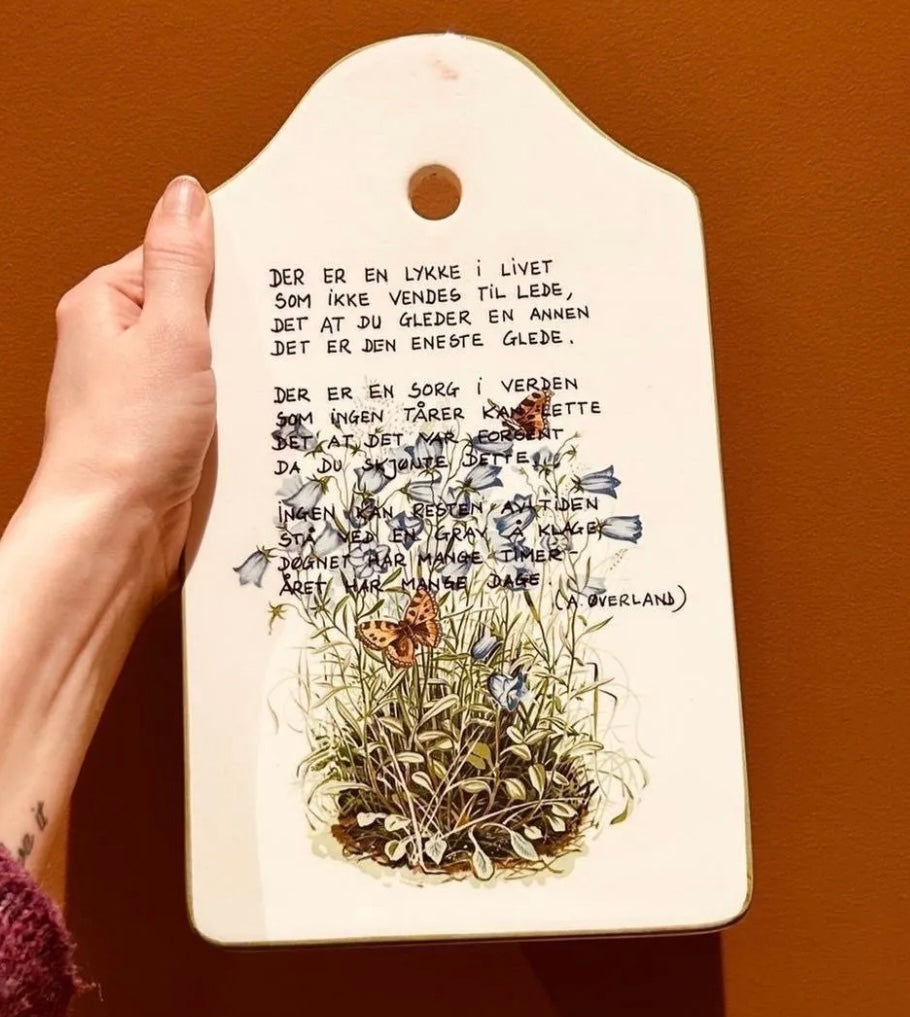 DER ER EN LYKKE i LIVET
SOM IKKE VENDES TIL LEDE,
DET AT DU GLEDER EN ANNEN
DET ER DEN ENESTE GLEDE.
DER ER EN SORG i VERDEN
SOM INGEN TÅRER KAN LETTE
DET AT DET VAR FORSENT
DA DU SKJØNTE DETTE..
INGEN KAN RESTEN AV TIDEN
STÅ VED EN GRAV Å KLAGE
DØGNET HAR MANGE TIMER-
ÅRET HAR MANGE DAGE.
(A. ØVERLAND)